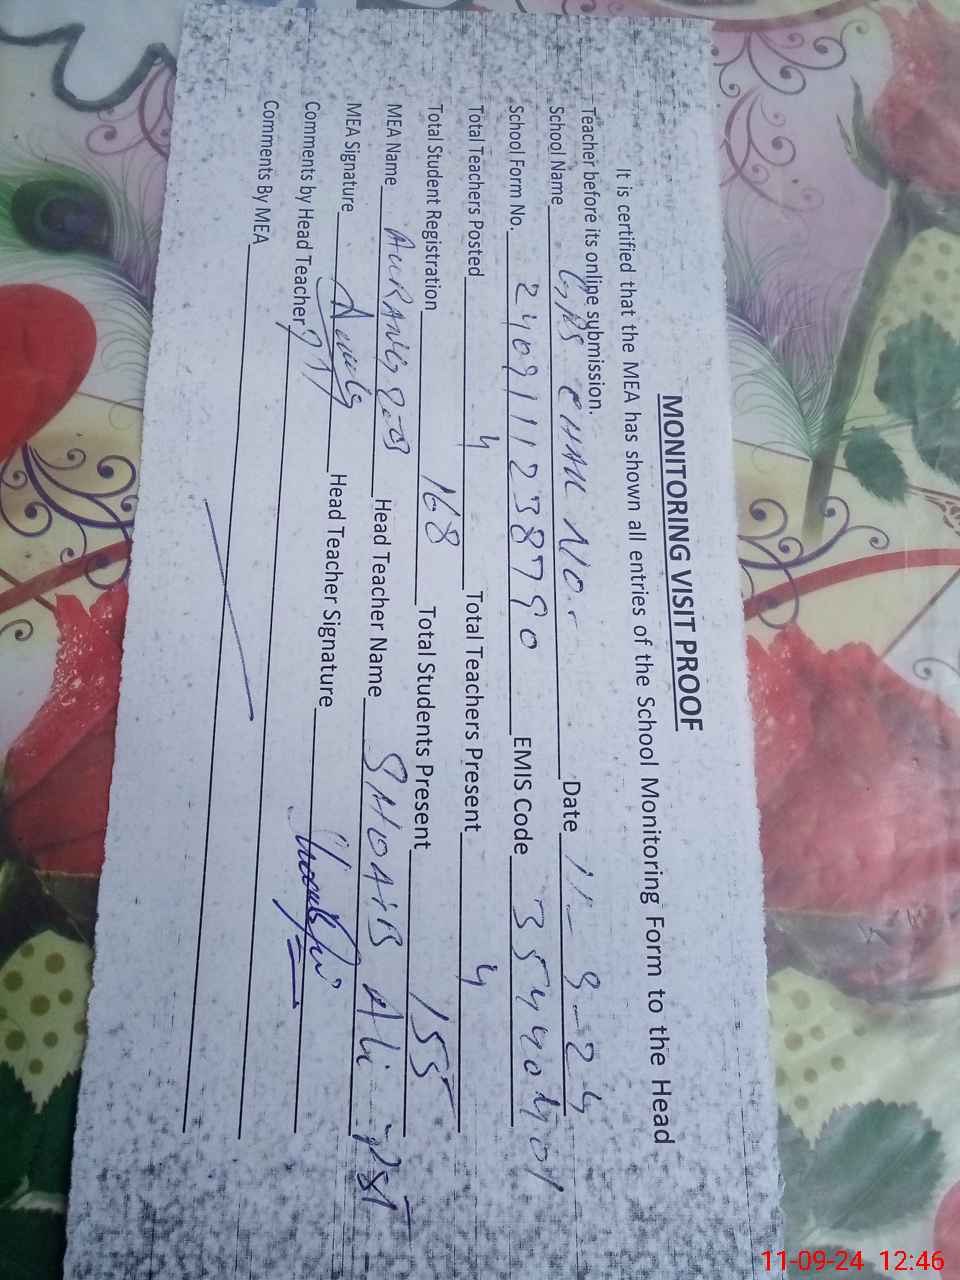 MONITORING VISIT PROOF
It is certified that the MEA has shown all entries of the School Monitoring Form to the Head
Teacher before its online submission.
School Name GPS CHAK NO. Date 11-9-24
School Form No. 2409111238790 EMIS Code 35440401
Total Teachers Posted 4 Total Teachers Present 4
Total Student Registration 168 Total Students Present 155
MEA Name AURANGZEB Head Teacher Name SHOAIB Ali PST
MEA Signature Head Teacher Signature
Comments by Head Teacher
Comments By MEA
11-09-24 12:46